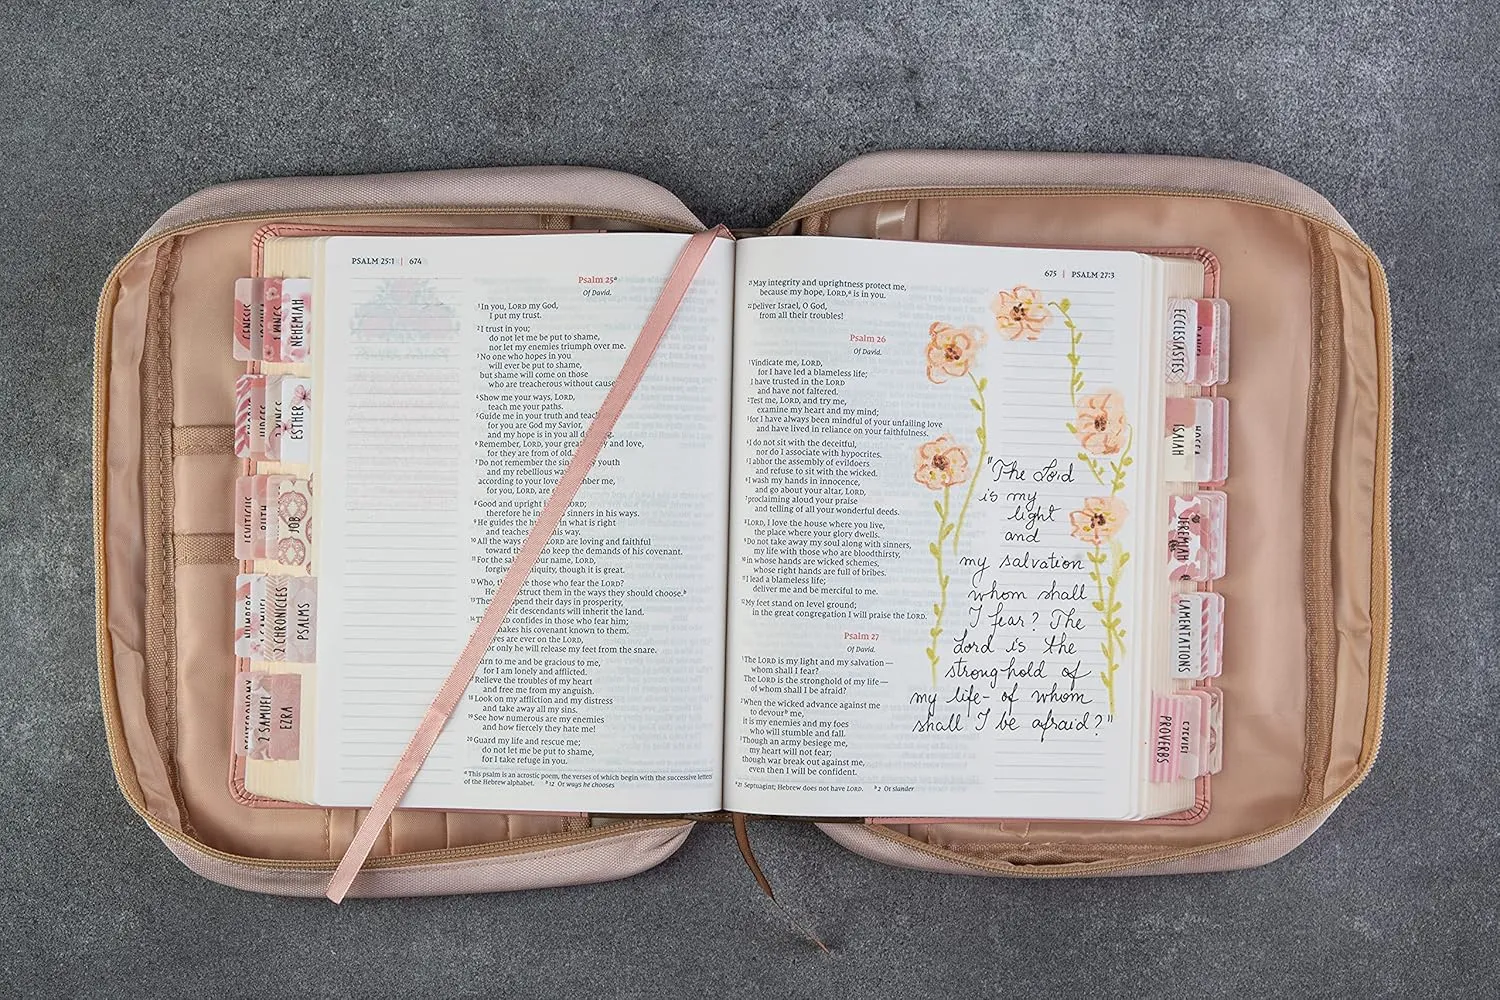 PSALM 25:1 | 674
Psalm 25ᵃ
Of David.
¹In you, LORD my God,
I put my trust.
²I trust in you;
do not let me be put to shame,
nor let my enemies triumph over me.
³No one who hopes in you
will ever be put to shame,
but shame will come on those
who are treacherous without cause
⁴Show me your ways, LORD,
teach me your paths.
⁵Guide me in your truth and teach
for you are God my Savior,
and my hope is in you all
⁶Remember, LORD, your great and love,
for they are from of old.
⁷Do not remember the sin youth
and my rebellious
according to your love me,
for you, LORD, are
⁸Good and upright LORD;
therefore he in sinners in his ways.
⁹He guides the in what is right
and teaches way.
¹⁰All the ways of LORD are loving and faithful
toward keep the demands of his covenant.
¹¹For the your name, LORD,
forgive iniquity, though it is great.
¹²Who, those who fear the LORD?
He instruct them in the ways they should choose.ᵇ
¹³They spend their days in prosperity,
their descendants will inherit the land.
¹⁴The confides in those who fear him;
makes his covenant known to them.
eyes are ever on the LORD,
for only he will release my feet from the snare.
turn to me and be gracious to me,
for I am lonely and afflicted.
Relieve the troubles of my heart
and free me from my anguish.
¹⁸Look on my affliction and my distress
and take away all my sins.
¹⁹See how numerous are my enemies
and how fiercely they hate me!
²⁰Guard my life and rescue me;
do not let me be put to shame,
for I take refuge in you.
ᵃ This psalm is an acrostic poem, the verses of which begin with the successive letters
of the Hebrew alphabet. ᵇ 12 Or ways he chooses
675 | PSALM 27:3
²¹May integrity and uprightness protect me,
because my hope, LORD,ᵃ is in you.
²²Deliver Israel, O God,
from all their troubles!
Psalm 26
Of David.
¹Vindicate me, LORD,
for I have led a blameless life;
I have trusted in the LORD
and have not faltered.
²Test me, LORD, and try me,
examine my heart and my mind;
³for I have always been mindful of your unfailing love
and have lived in reliance on your faithfulness.
⁴I do not sit with the deceitful,
nor do I associate with hypocrites.
⁵I abhor the assembly of evildoers
and refuse to sit with the wicked.
⁶I wash my hands in innocence,
and go about your altar, LORD,
⁷proclaiming aloud your praise
and telling of all your wonderful deeds.
⁸LORD, I love the house where you live,
the place where your glory dwells.
⁹Do not take away my soul along with sinners,
my life with those who are bloodthirsty,
¹⁰in whose hands are wicked schemes,
whose right hands are full of bribes.
¹¹I lead a blameless life;
deliver me and be merciful to me.
¹²My feet stand on level ground;
in the great congregation I will praise the LORD.
Psalm 27
Of David.
¹The LORD is my light and my salvation—
whom shall I fear?
The LORD is the stronghold of my life—
of whom shall I be afraid?
²When the wicked advance against me
to devourᵇ me,
it is my enemies and my foes
who will stumble and fall.
³Though an army besiege me,
my heart will not fear;
though war break out against me,
even then I will be confident.
ᵃ 21 Septuagint; Hebrew does not have LORD. ᵇ 2 Or slander
"The Lord
is my
light
and
my salvation
whom shall
I fear? The
Lord is the
stronghold of
my life- of whom
shall I be afraid?"
GENESIS
NEHEMIAH
ESTHER
LEVITICUS
RUTH
JOB
2 CHRONICLES
PSALMS
2 SAMUEL
EZRA
ECCLESIASTES
DANIEL
ISAIAH
HOSEA
JEREMIAH
LAMENTATIONS
PROVERBS